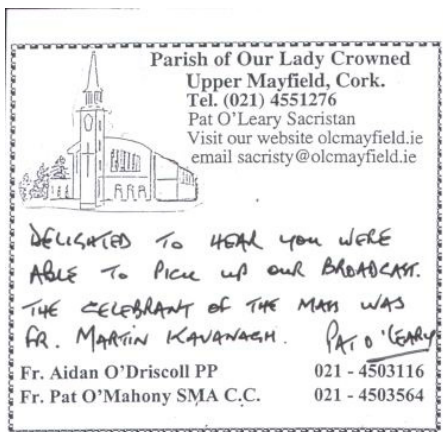 Parish of Our Lady Crowned
Upper Mayfield, Cork.
Tel. (021) 4551276
Pat O'Leary Sacristan
Visit our website olcmayfield.ie
email sacristy@olcmayfield.ie
DELIGHTED TO HEAR YOU WERE
ABLE TO PICK UP OUR BROADCAST.
THE CELEBRANT OF THE MASS WAS
FR. MARTIN KAVANAGH. PAT O'LEARY
Fr. Aidan O'Driscoll PP 021 - 4503116
Fr. Pat O'Mahony SMA C.C. 021 - 4503564